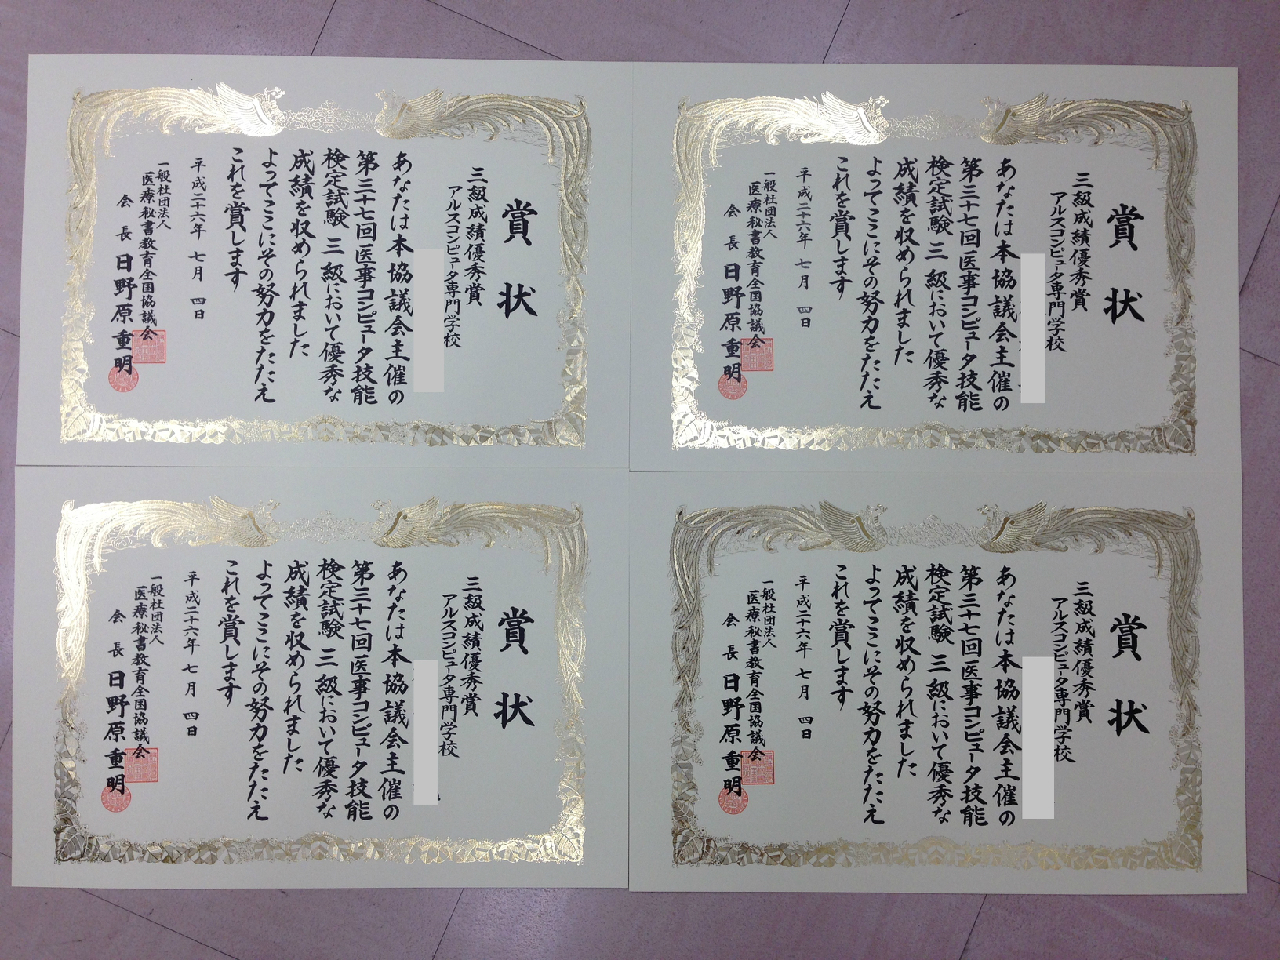 賞状
三級成績優秀賞
アルスコンピュータ専門学校
あなたは本協議会主催の
第三十七回医事コンピュータ技能
検定試験三級において優秀な
成績を収められました
よってここにその努力をたたえ
これを賞します
平成二十六年七月四日
一般社団法人
医療秘書教育全国協議会
会長日野原重明
賞状
三級成績優秀賞
アルスコンピュータ専門学校
あなたは本協議会主催の
第三十七回医事コンピュータ技能
検定試験三級において優秀な
成績を収められました
よってここにその努力をたたえ
これを賞します
平成二十六年七月四日
一般社団法人
医療秘書教育全国協議会
会長日野原重明
賞状
三級成績優秀賞
アルスコンピュータ専門学校
あなたは本協議会主催の
第三十七回医事コンピュータ技能
検定試験三級において優秀な
成績を収められました
よってここにその努力をたたえ
これを賞します
平成二十六年七月四日
一般社団法人
医療秘書教育全国協議会
会長日野原重明
賞状
三級成績優秀賞
アルスコンピュータ専門学校
あなたは本協議会主催の
第三十七回医事コンピュータ技能
検定試験三級において優秀な
成績を収められました
よってここにその努力をたたえ
これを賞します
平成二十六年七月四日
一般社団法人
医療秘書教育全国協議会
会長日野原重明